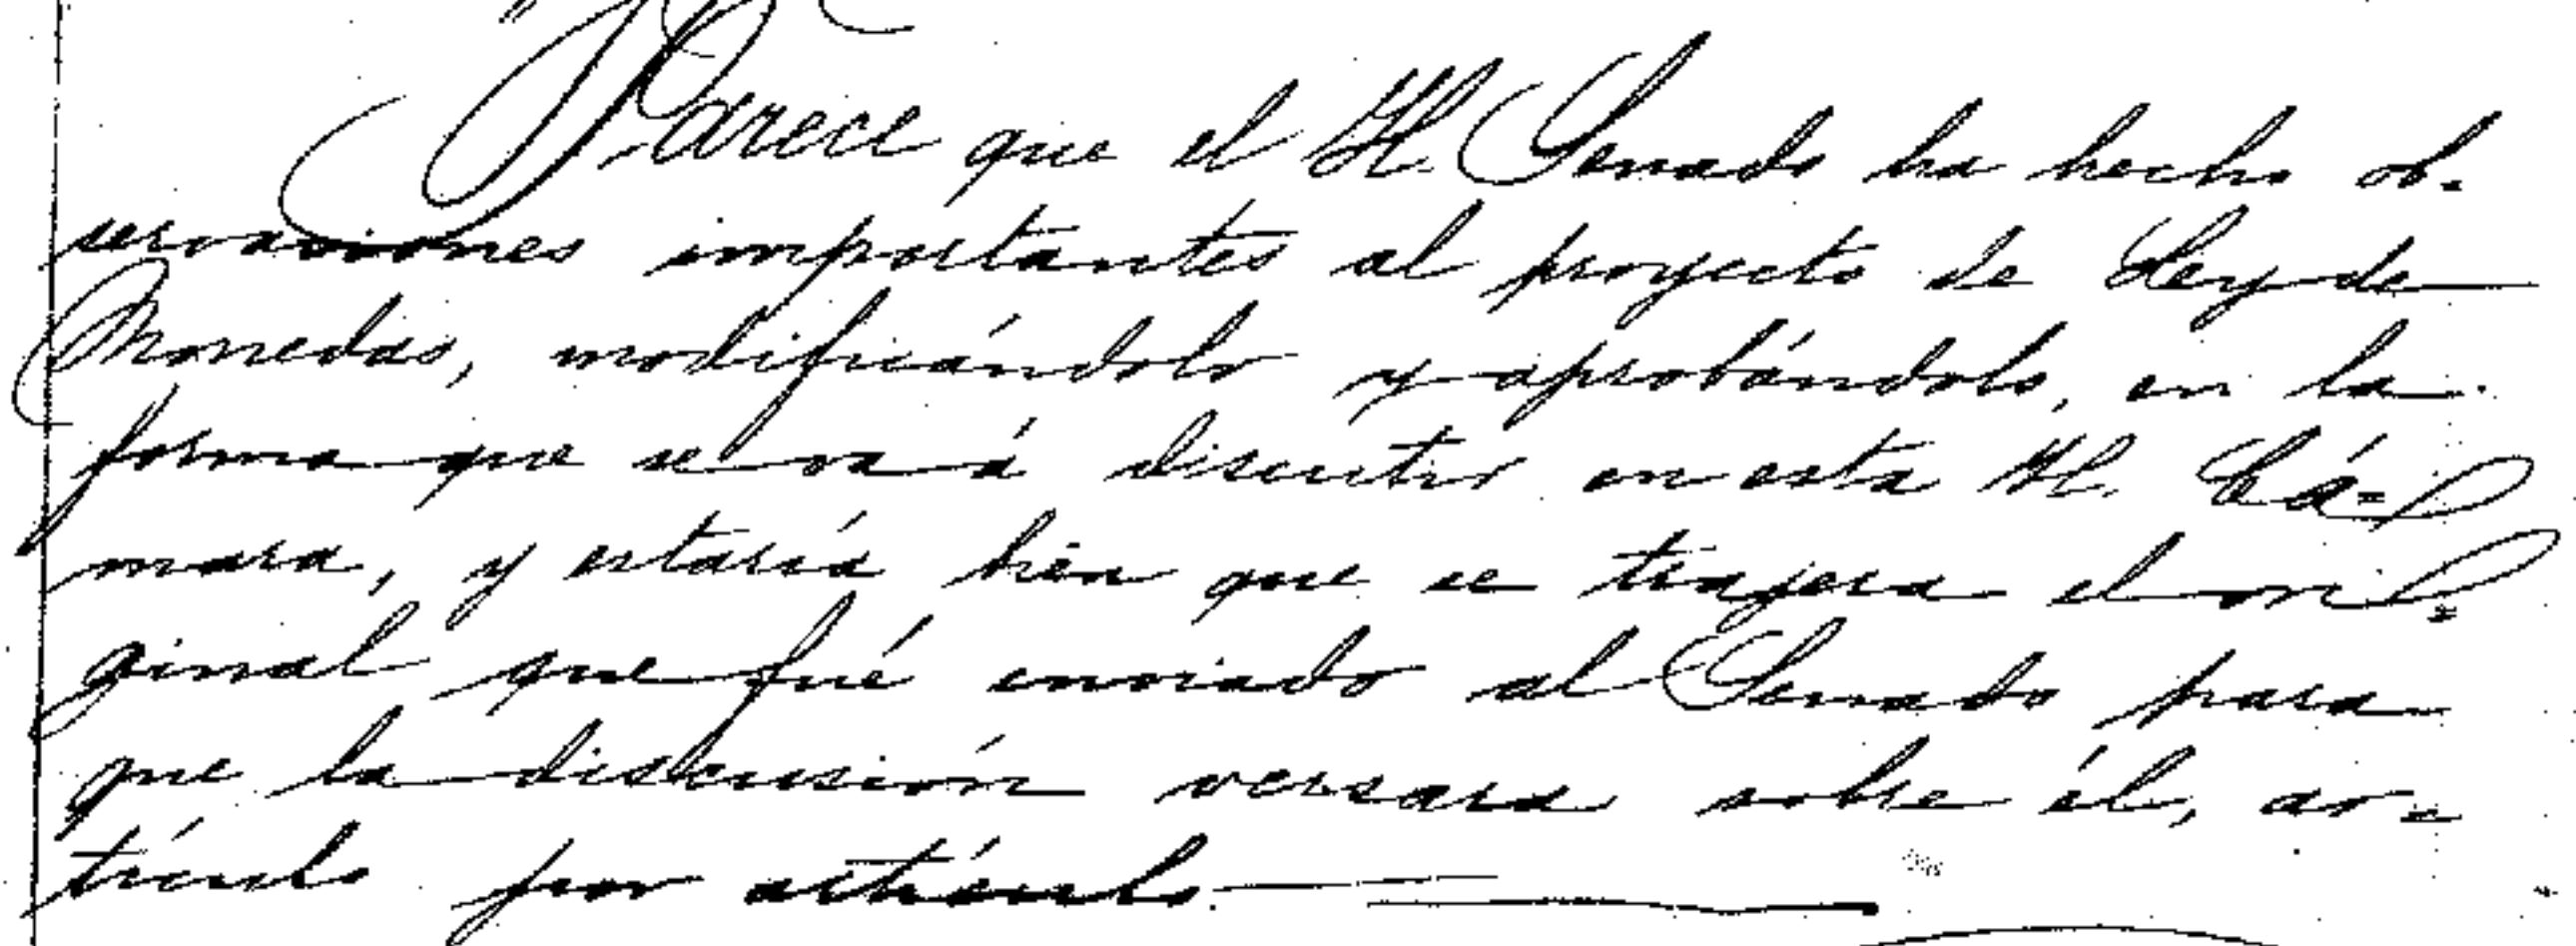 Parece que el H. Senado ha hecho ob-
servaciones importantes al proyecto de Ley de
Monedas, modificándolo y aprobándolo, en la
forma que se va á discutir en esta H. Cá=
mara, y estaría bien que se trajera el ori=
ginal que fué enviado al Senado para
que la discusión versara sobre él, ar=
tículo por artículo.